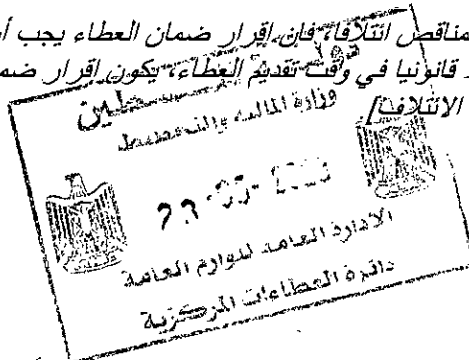 مناقص ائتلافا، فإن إقرار ضمان العطاء يجب أ
قانونيا في وقت تقديم العطاء، يكون إقرار ضم
الائتلاف]
دولة فلسطين
وزارة المالية والتخطيط
الادارة العامة للوازم العامة
دائرة العطاءات المركزية